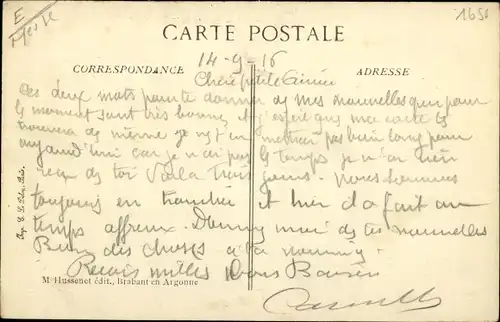 E
1650
CARTE POSTALE
14-9-16
CORRESPONDANCE
ADRESSE
Chère petite Aimée
Ces deux mots pour te donner de mes nouvelles qui pour
le moment sont très bonnes et j'espère que ma carte te
trouvera de même je ne t'en mettrai pas bien long pour
aujourd'hui car je n'ai pas le temps je n'ai rien
reçu de toi voila trois jours. Nous sommes
toujours en tranchée et hier il a fait un
temps affreux. Donne moi de tes nouvelles
Bien des choses à ta
Reçois milles Bons Baisers
M. Hussenet édit., Brabant en Argonne